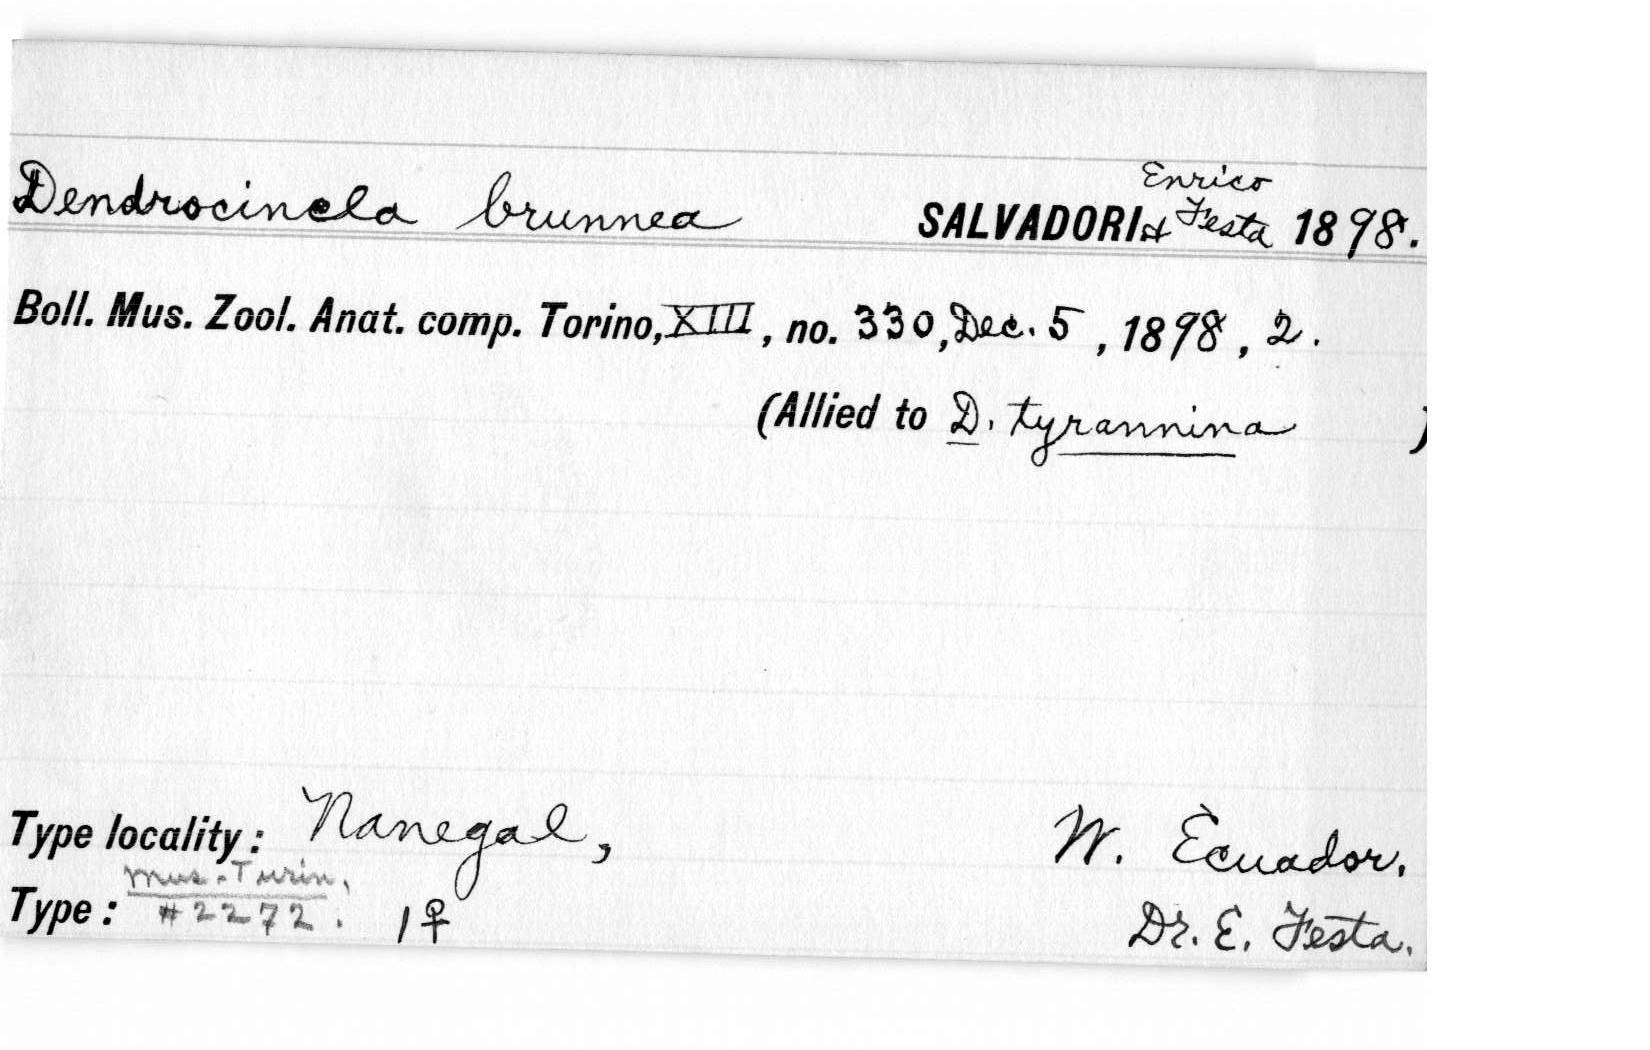 Dendrocincla brunnea SALVADORI & Enrico Festa 1898.
Boll. Mus. Zool. Anat. comp. Torino, XIII, no. 330, Dec. 5, 1898, 2.
(Allied to D. tyrannina )
Type locality: Nanegal, W. Ecuador.
Type: Mus. Turin. #2272. 1♀ Dr. E. Festa.